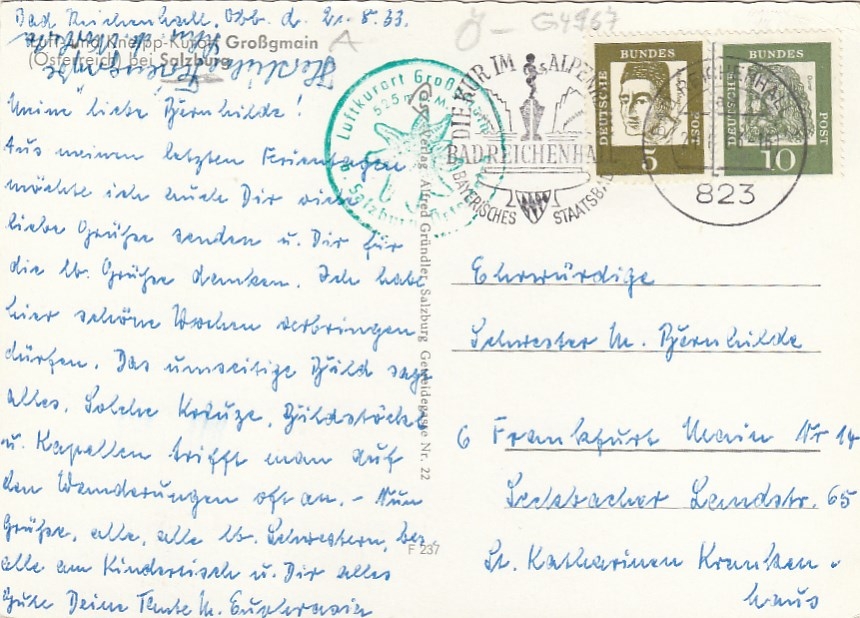 Bad Reichenhall, Obb. d. 21.8.63.
Luft- und Kneipp-Kurort Großgmain
(Österreich) bei Salzburg
A
Ö – G4967
Meine liebe Bernhilde!
Aus meinen letzten Ferientagen
möchte ich auch Dir viele
liebe Grüße senden u. Dir für
die lb. Grüße danken. Ich habe
hier schöne Wochen verbringen
dürfen. Das umseitige Bild sagt
alles. Solche Kreuze, Bildstöckl
u. Kapellen trifft man auf
den Wanderungen oft an. – Nun
Grüße, alle, alle lb. Schwestern, bes.
alle am Kindertisch u. Dir alles
Gute Deine Tante M. Euphrasia
Luftkurort Großgmain
525 m
Salzburg
Verlag Alfred Gründler, Salzburg Getreidegasse Nr. 22
F 237
DIE KUR IM ALPEN
BAD REICHENHALL
BAYERISCHES STAATSBAD
DEUTSCHE BUNDES POST
5
DEUTSCHE BUNDES POST
10
REICHENHALL
823
Ehrwürdige
Schwester M. Bernhilde
6 Frankfurt Main Nr 14
Seckbacher Landstr. 65
St. Katharinen Kranken-
haus